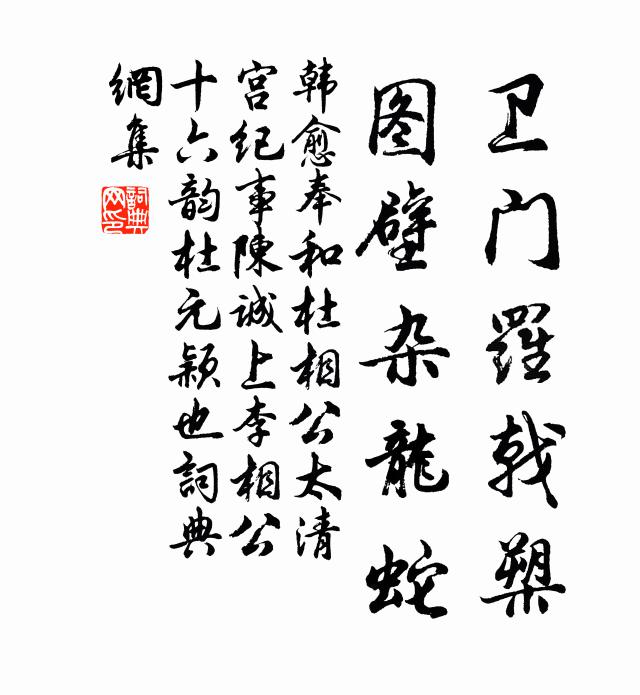 卫门羅戟槊
图壁杂龍蛇
韩愈奉和杜相公太清
宫纪事陳诚上李相公
十六韵杜元颖也詞典
網集
詞典
网印